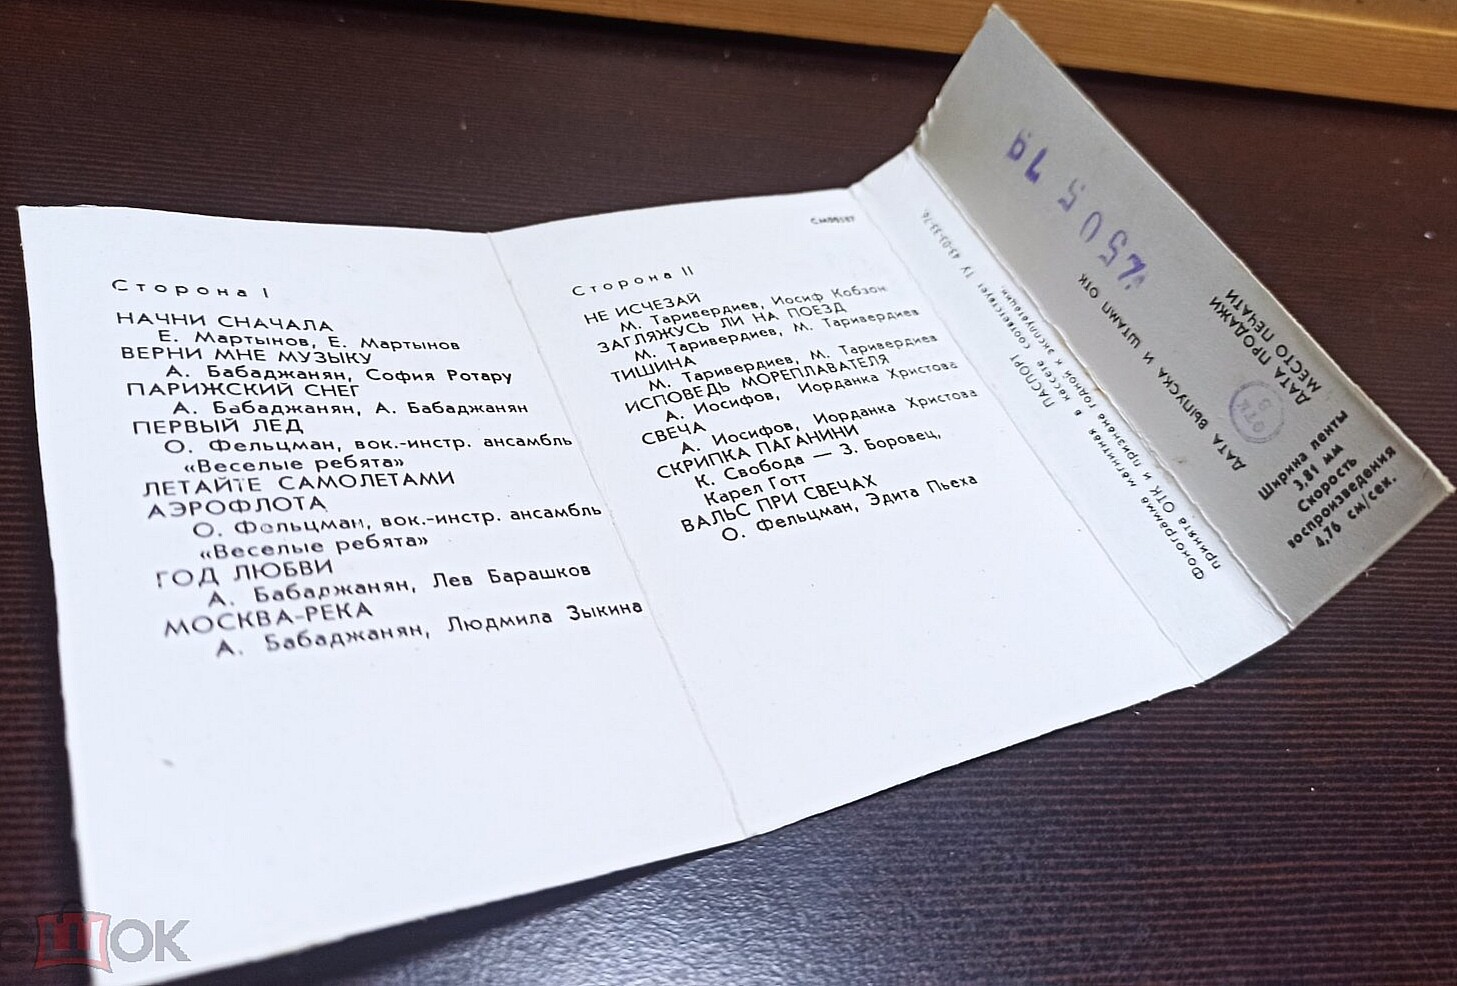 Сторона I
НАЧНИ СНАЧАЛА
Е. Мартынов, Е. Мартынов
ВЕРНИ МНЕ МУЗЫКУ
А. Бабаджанян, София Ротару
ПАРИЖСКИЙ СНЕГ
А. Бабаджанян, А. Бабаджанян
ПЕРВЫЙ ЛЕД
О. Фельцман, вок.-инстр. ансамбль
«Веселые ребята»
ЛЕТАЙТЕ САМОЛЕТАМИ
АЭРОФЛОТА
О. Фельцман, вок.-инстр. ансамбль
«Веселые ребята»
ГОД ЛЮБВИ
А. Бабаджанян, Лев Барашков
МОСКВА-РЕКА
А. Бабаджанян, Людмила Зыкина
Сторона II
НЕ ИСЧЕЗАЙ
М. Таривердиев, Иосиф Кобзон
ЗАГЛЯЖУСЬ ЛИ НА ПОЕЗД
М. Таривердиев, М. Таривердиев
ТИШИНА
М. Таривердиев, М. Таривердиев
ИСПОВЕДЬ МОРЕПЛАВАТЕЛЯ
А. Иосифов, Иорданка Христова
СВЕЧА
А. Иосифов, Иорданка Христова
СКРИПКА ПАГАНИНИ
К. Свобода — З. Боровец,
Карел Готт
ВАЛЬС ПРИ СВЕЧАХ
О. Фельцман, Эдита Пьеха
ПАСПОРТ
Фонограмма магнитная в кассете соответствует ТУ 43-03-33-76,
принята ОТК и признана годной к эксплуатации.
ДАТА ВЫПУСКА И ШТАМП ОТК
ОТК
ДАТА ПРОДАЖИ
МЕСТО ПЕЧАТИ
Ширина ленты
3,81 мм
Скорость
воспроизведения
4,76 см/сек.